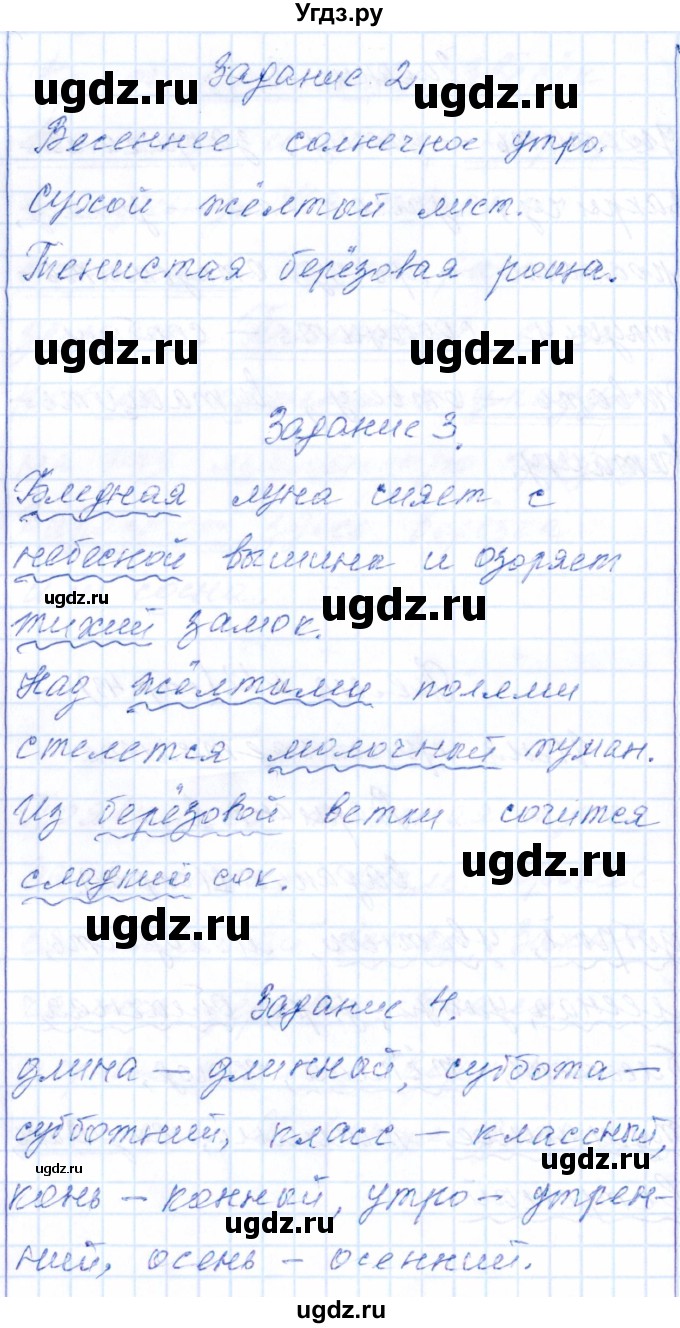 Угдз.ру
Задание 2
ugdz.ru ugdz.ru
Весеннее солнечное утро.
Сухой жёлтый лист.
Тенистая берёзовая роща.
ugdz.ru ugdz.ru
Задание 3.
Бледная луна сияет с
небесной вышины и озоряет
ugdz.ru ugdz.ru
тихий замок.
Над жёлтыми полями
стелется молочный туман.
Из берёзовой ветки сочится
ugdz.ru
сладкий сок.
ugdz.ru
Задание 4.
длина – длинный, суббота –
субботний, класс – классный,
ugdz.ru ugdz.ru
конь – конный, утро – утрен-
ugdz.ru
ний, осень – осенний.
ugdz.ru